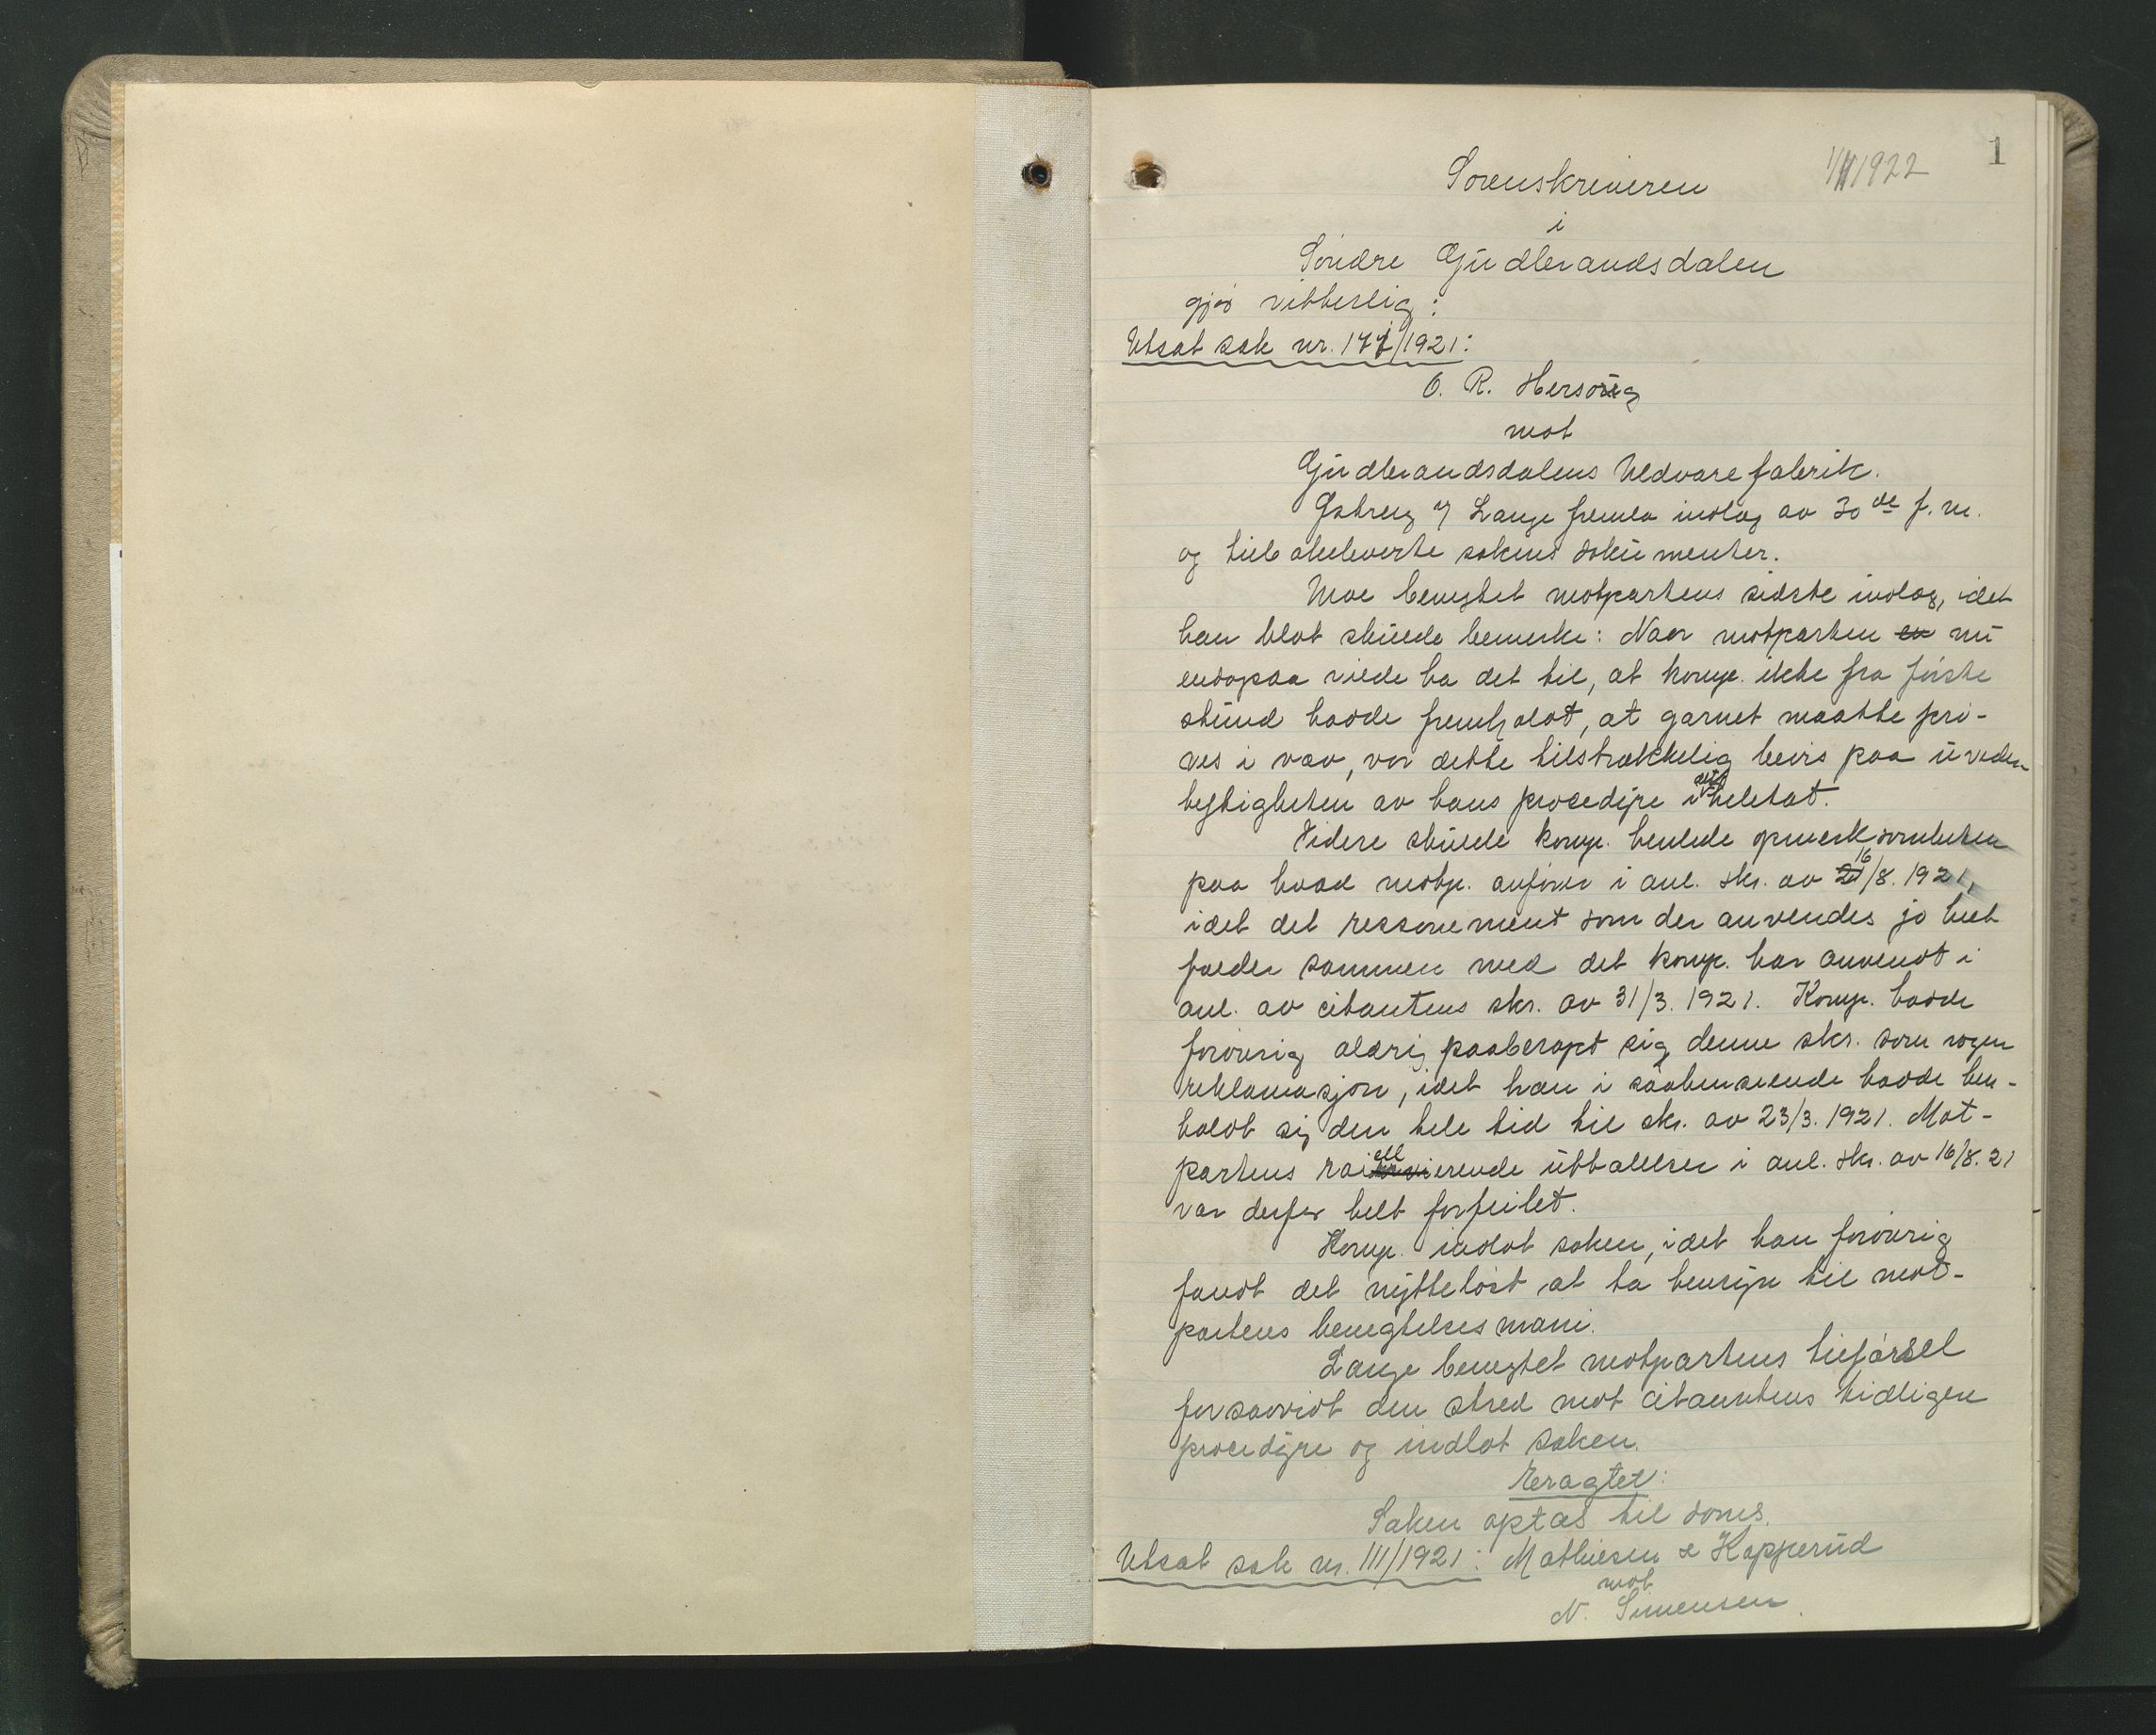 1
1922
Sorenskriveren
i
Søndre Gudbrandsdalen
gjør vitterlig:
Utsat sak nr. 177/1921:
O. R. Hersoug
mot
Gudbrandsdalens Uldvarefabrik.
Lange fremla indlæg av 30de f. m.
og tilbakeleverte sakens dokumenter.
Moe benegtet motpartens sidste indlæg, idet
han blot skulde bemerke: Naar motparten en nu
endogsaa vilde ha det til, at komp. ikke fra første
stund hadde fremholdt, at garnet maatte prø-
ves i væv, var dette tilstrækkelig bevis paa uveder-
heftigheten av hans procedyre i sin helehet.
Videre skulde komp. henlede opmerksomheten
paa hvad motp. anfører i anl. skr. av 16/8. 1921,
idet det ressonement som der anvendes jo helt
falder sammen med det komp. har anvendt i
anl. av citantens skr. av 31/3. 1921. Komp. hadde
forøvrig aldrig paaberopt sig denne skr. som nogen
reklamasjon, idet han i saahenseende hadde hen-
holdt sig den hele tid til skr. av 23/3. 1921. Mot-
partens raillerende uttalelser i anl. skr. av 16/8. 21
var derfor helt forfeilet.
Komp. indlot saken, idet han forøvrig
fandt det nytteløst at ta hensyn til mot-
partens benegtelsesmani.
Lange benegtet motpartens tilførsel
forsaavidt den stred mot citantens tidligere
procedyre og indlot saken.
Eragtet:
Saken optas til doms.
Utsat sak nr. 111/1921: Mathiesen & Kopperud
mot
N. Simensen.